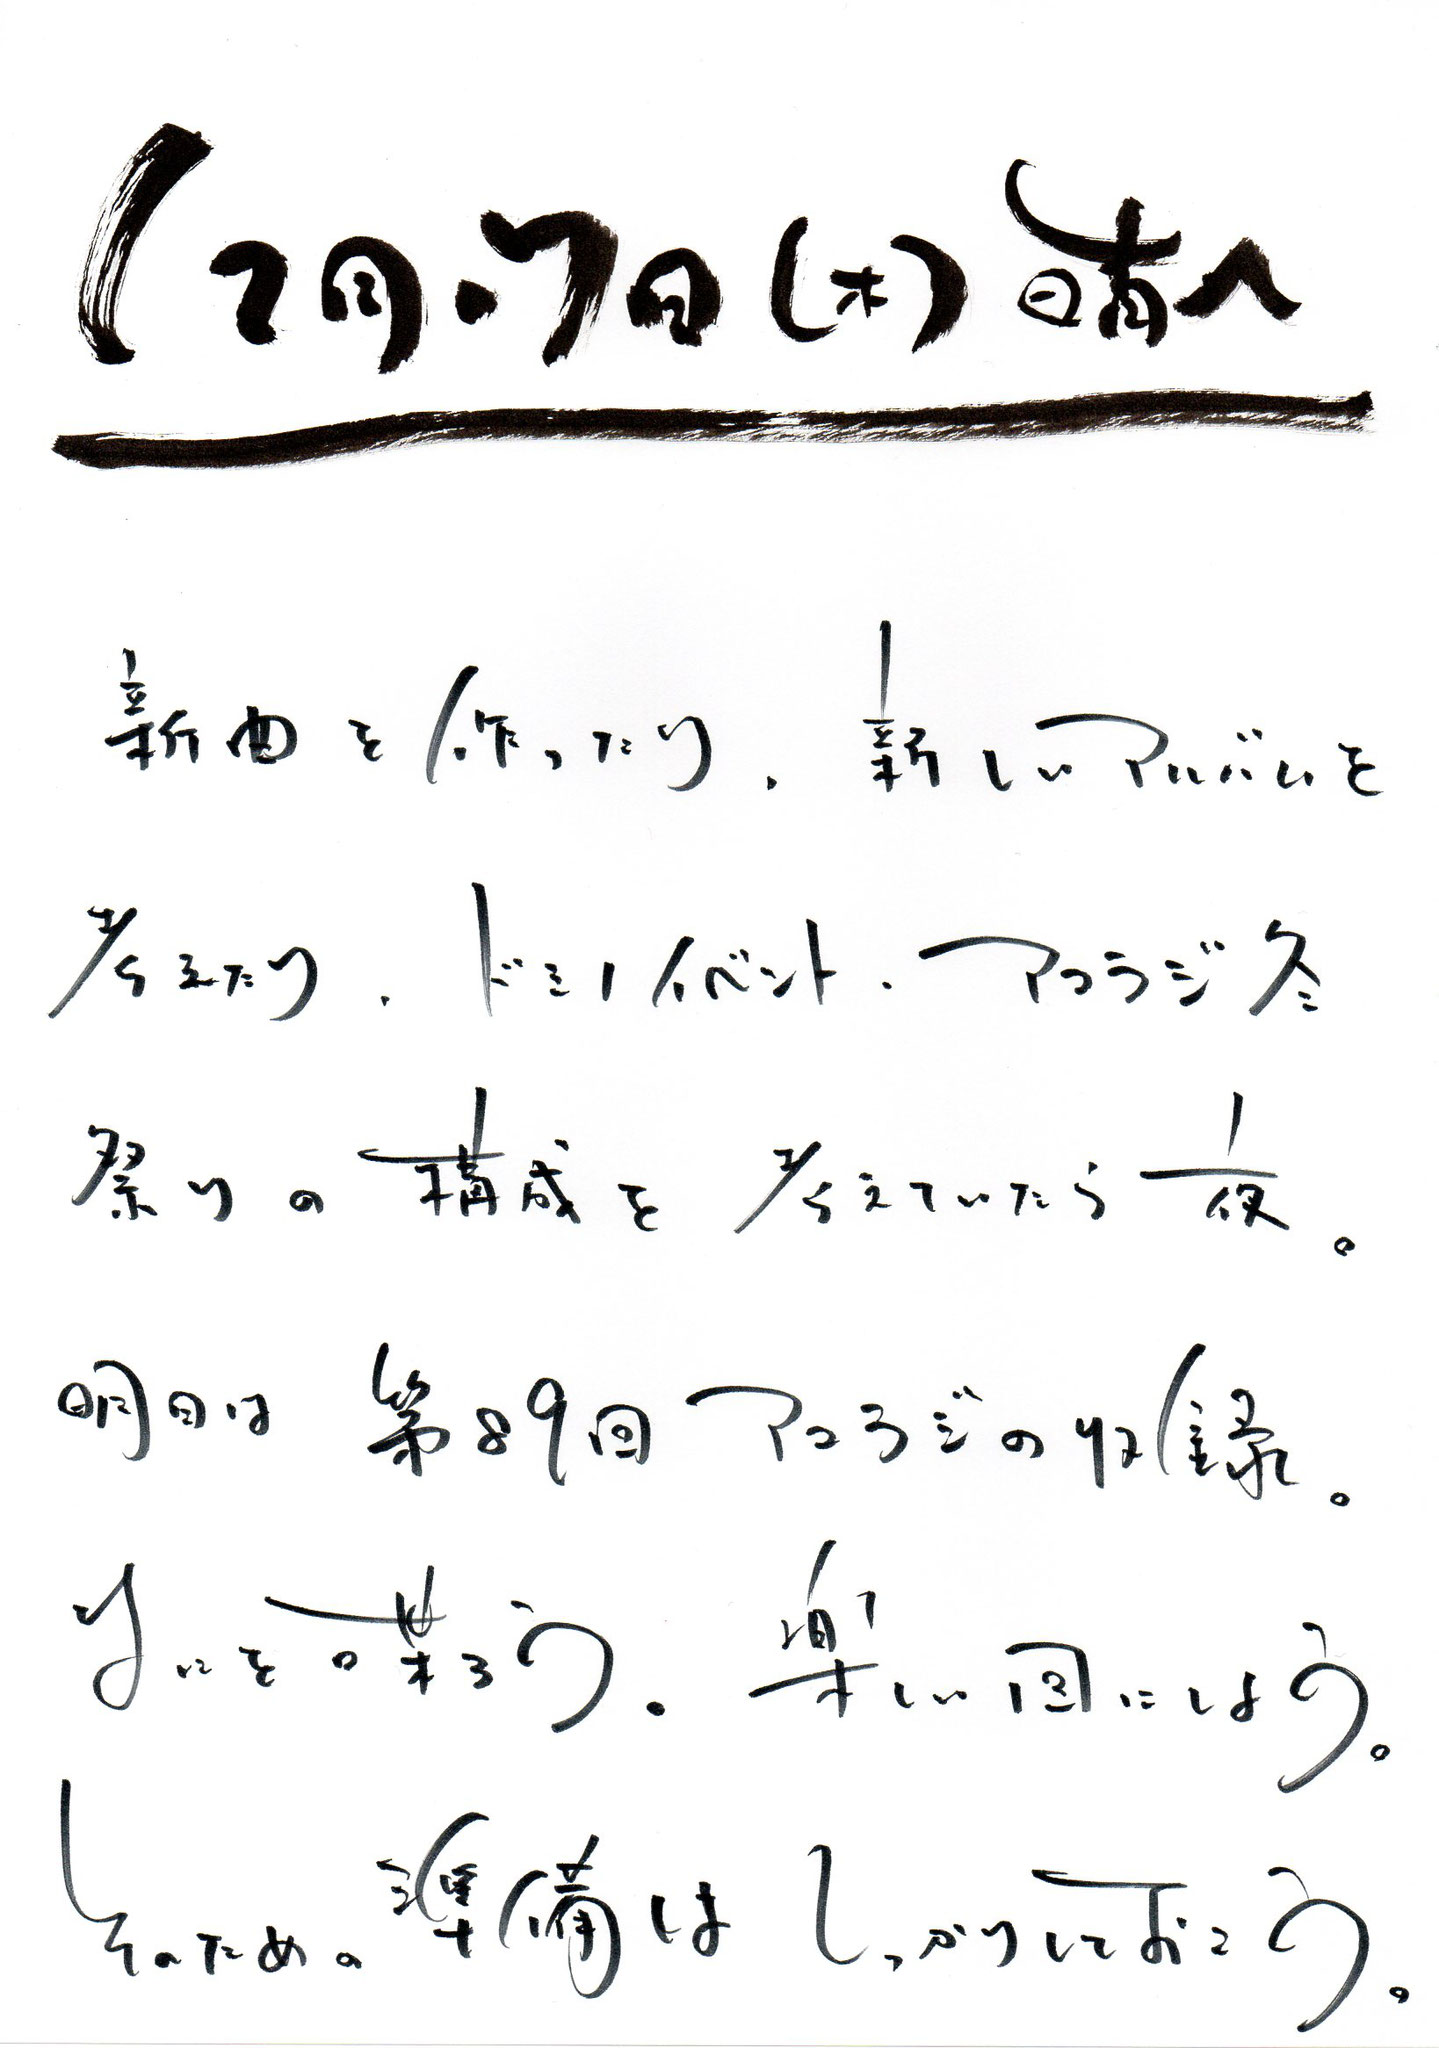 12月17日(木) 晴へ
新曲を作ったり、新しいアルバムを
考えたり、ドミノイベント、アコラジ冬
祭りの構成を考えていたら夜。
明日は第89回アコラジの収録。
なにを喋ろう。楽しい回にしよう。
そのための準備はしっかりしておこう。